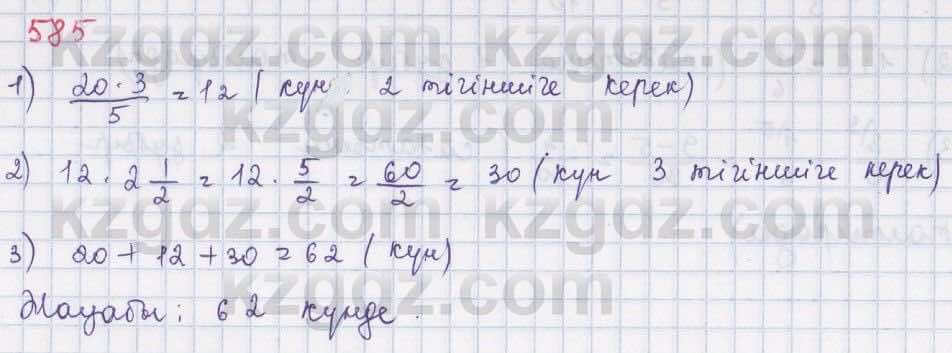 585
1) 20 · 3 / 5 = 12 (күн: 2 тігіншіге керек)
2) 12 · 2 1/2 = 12 · 5/2 = 60/2 = 30 (күн 3 тігіншіге керек)
3) 20 + 12 + 30 = 62 (күн)
Жауабы: 62 күнде.
kzgdz.com kzgdz.com
kzgdz.com kzgdz.com
kzgdz.com kzgdz.com
kzgdz.com kzgdz.com